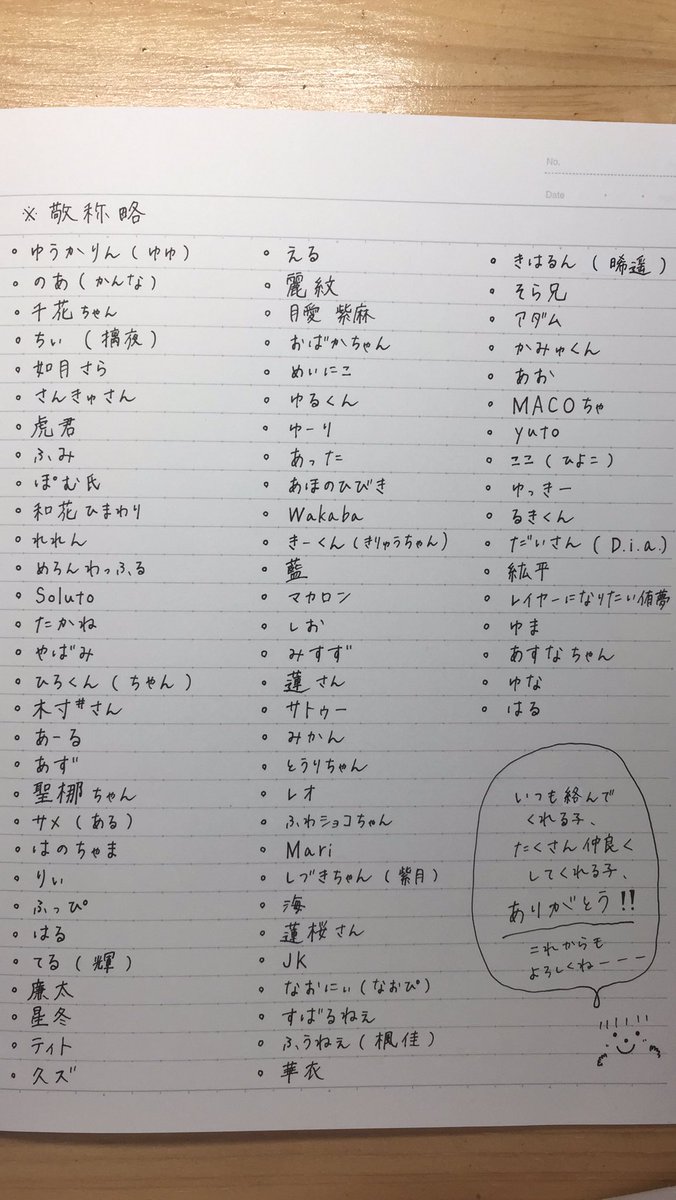 No.
Date
※敬称略
• ゆうかりん(ゆゅ)
• のあ(かんな)
• 千花ちゃん
• ちい (檎夜)
• 如月さら
• さんきゅさん
• 虎君
• ふみ
• ぽむ氏
• 和花ひまわり
• れれん
• めろんわっふる
• Soluto
• たかね
• やばみ
• ひろくん(ちゃん)
• 木寸#さん
• あーる
• あず
• 聖梛ちゃん
• サメ(ある)
• はのちゃま
• りぃ
• ふっぴ
• はる
• てる(輝)
• 廉太
• 星冬
• ティト
• 久ズ
• える
• 麗紋
• 月愛 紫麻
• おばかちゃん
• めいにこ
• ゆるくん
• ゆーり
• あった
• あほのひびき
• Wakaba
• きーくん(きりゅうちゃん)
• 藍
• マカロン
• しお
• みすず
• 蓮さん
• サトゥー
• みかん
• とうりちゃん
• レオ
• ふわショコちゃん
• Mari
• しづきちゃん(紫月)
• 海
• 蓮桜さん
• JK
• なおにぃ(なおぴ)
• すばるねぇ
• ふうねぇ(楓佳)
• 華衣
• きはるん(晞遥)
• そら兄
• アダム
• かみゅくん
• あお
• MACOちゃ
• yuto
• ここ(ひよこ)
• ゆっきー
• るきくん
• だいさん(D.i.a.)
• 紘平
• レイヤーになりたい侑夢
• ゆま
• あすなちゃん
• ゆな
• はる
いつも絡んで
くれる子、
たくさん仲良く
してくれる子、
ありがとう!!
これからも
よろしくねーーー